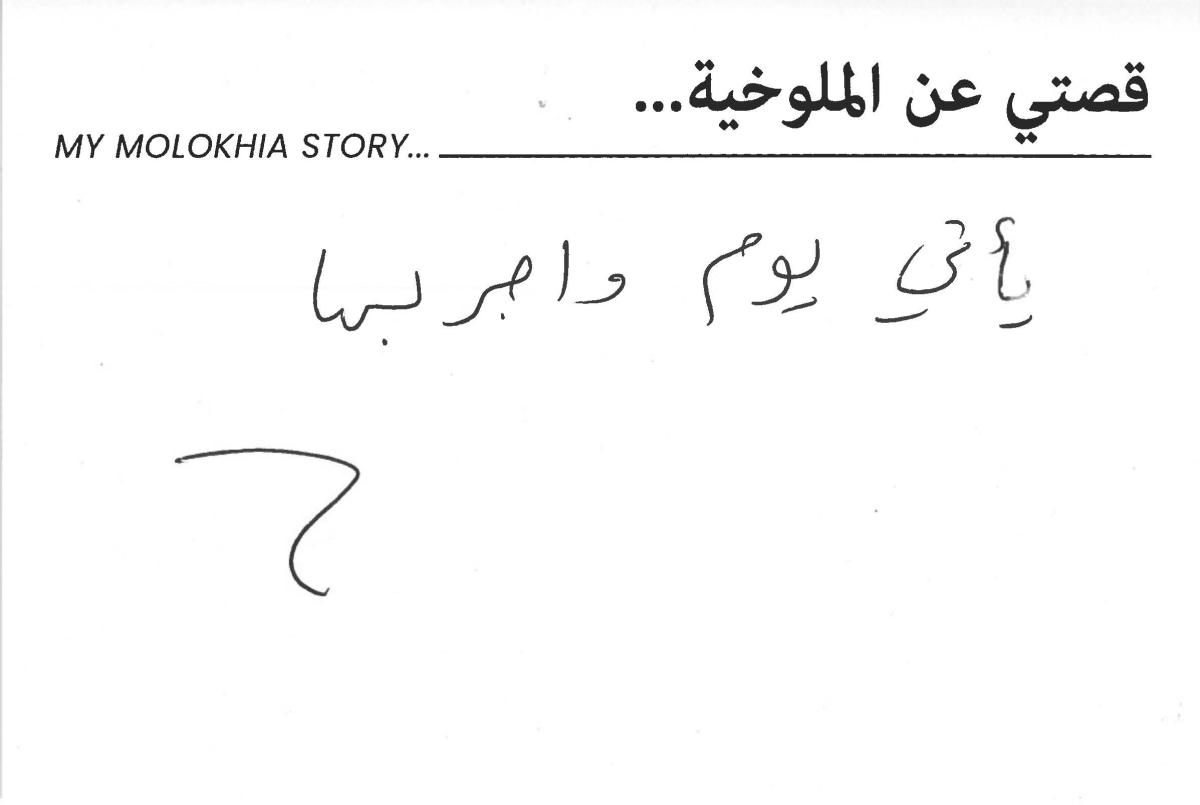 قصتي عن الملوخية...
MY MOLOKHIA STORY...
يأتي يوم واجربها